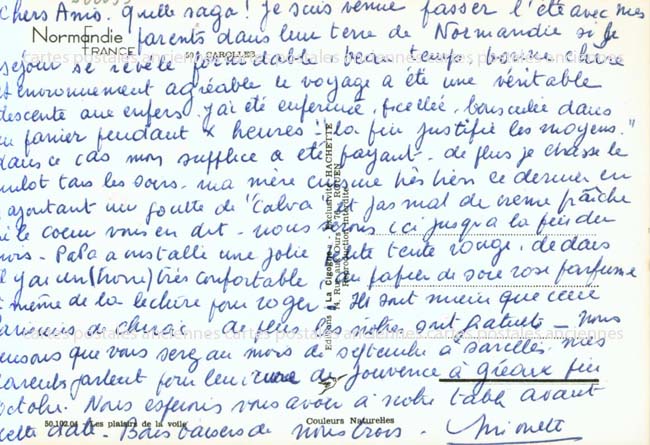 chers Amis. quelle saga! je suis venue passer l'été avec mes
Normandie
FRANCE
parents dans leur terre de Normandie si le
CAROLLES
séjour se révèle fort beau temps bonne chère
et environnement agréable le voyage a été une véritable
descente aux enfers. j'ai été enfermée, ficelée, bousculée dans
un panier pendant x heures - "la fin justifie les moyens."
dans ce cas mon supplice a été payant. de plus je chasse le
mulot tous les soirs. ma mère cuisine très bien ce dernier en
ajoutant une goutte de "calva" et pas mal de crème fraîche
si le coeur vous en dit. nous serons ici jusqu'à la fin du
mois. Papa a installé une jolie petite tente rouge. dedans
il y a un (trone) très confortable papier de soie rose parfumé
et même de la lecture pour roger. Ils sont mieux que ceux
de chirac de plus les nôtres sont gratuits - nous
pensons que vous serez au mois de septembre à Sarcelles mes
parents partent pour leur cure de jouvence à gréoux fin
octobre. Nous espérons vous avoir à notre table avant
cette date - Bons baisers de nous trois.
Editions "La Cigogne" - Exclusivité HACHETTE
74, Rue aux Ours - Tél. ROUEN
Reproduction interdite
50.102.04 - Les plaisirs de la voile
Couleurs Naturelles
cartes postales anciennes cartes postales anciennes cartes postales anciennes
cartes postales anciennes cartes postales anciennes cartes postales anciennes